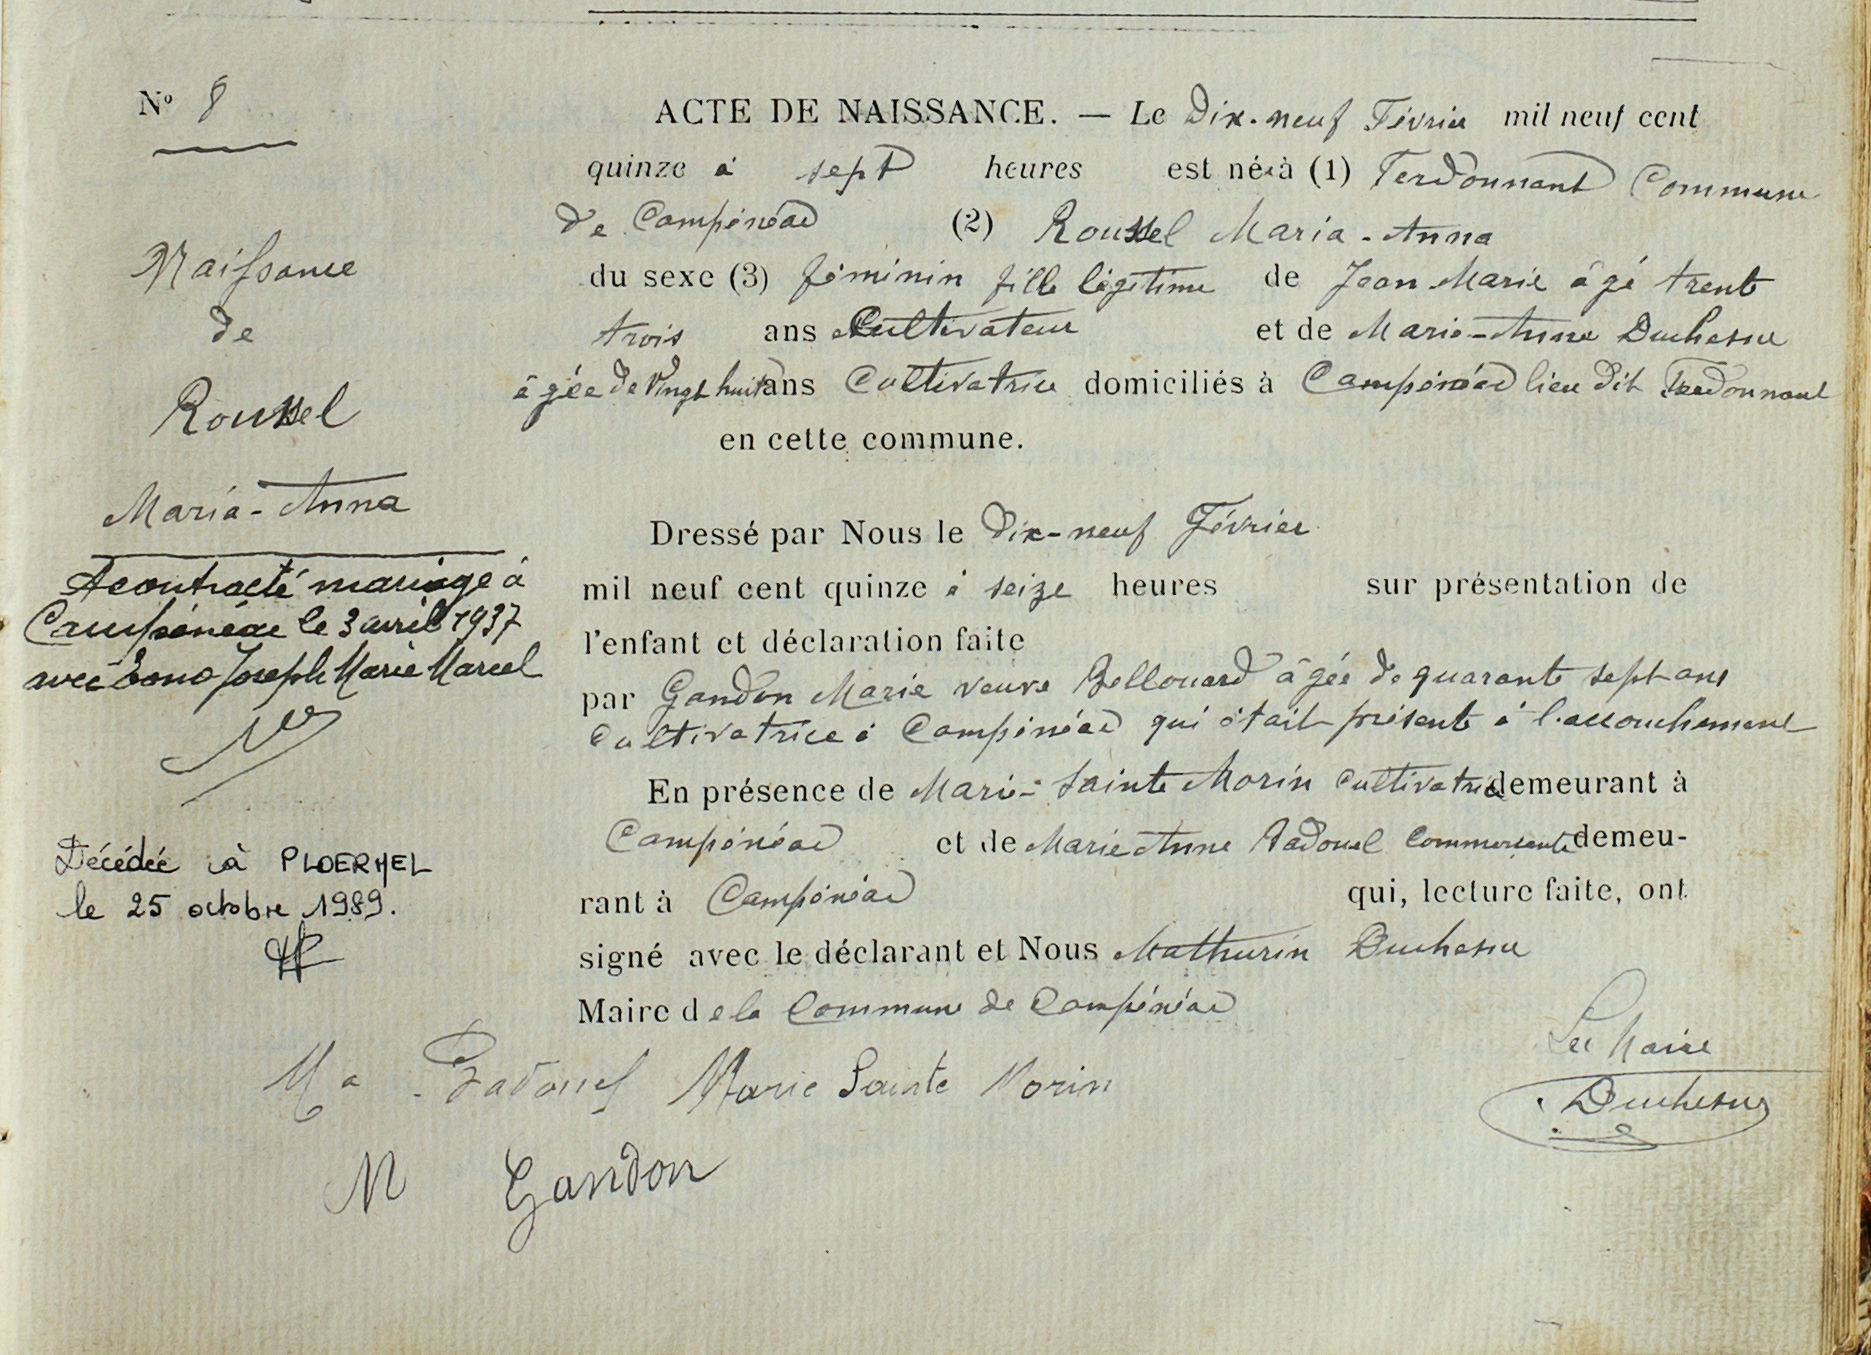 N° 8
Naissance
de
Roussel
Maria-Anna
A contracté mariage à
Campénéac le 3 avril 1937
avec Joseph Marie Marcel
Décédée à PLOERMEL
le 25 octobre 1989.
ACTE DE NAISSANCE. — Le Dix-neuf Février mil neuf cent
quinze à sept heures est née à (1) Terdonnant Commune
de Campénéac (2) Roussel Maria-Anna
du sexe (3) féminin fille légitime de Jean Marie âgé trente
trois ans Cultivateur et de Marie-Anne Duchesne
âgée de Vingt huit ans Cultivatrice domiciliés à Campénéac lieu dit Terdonnant
en cette commune.
Dressé par Nous le Dix-neuf Février
mil neuf cent quinze à seize heures sur présentation de
l'enfant et déclaration faite
par Gandon Marie veuve Bellouard âgée de quarante sept ans
Cultivatrice à Campénéac qui était présente à l'accouchement
En présence de Marie-Sainte Morin Cultivatrice demeurant à
Campénéac et de Marie Anne Badouel Commersante demeu-
rant à Campénéac qui, lecture faite, ont
signé avec le déclarant et Nous Mathurin Duchesne
Maire de la Commune de Campénéac
Le Maire
Ma Badouel Marie Sainte Morin
Duchesne
M Gandon